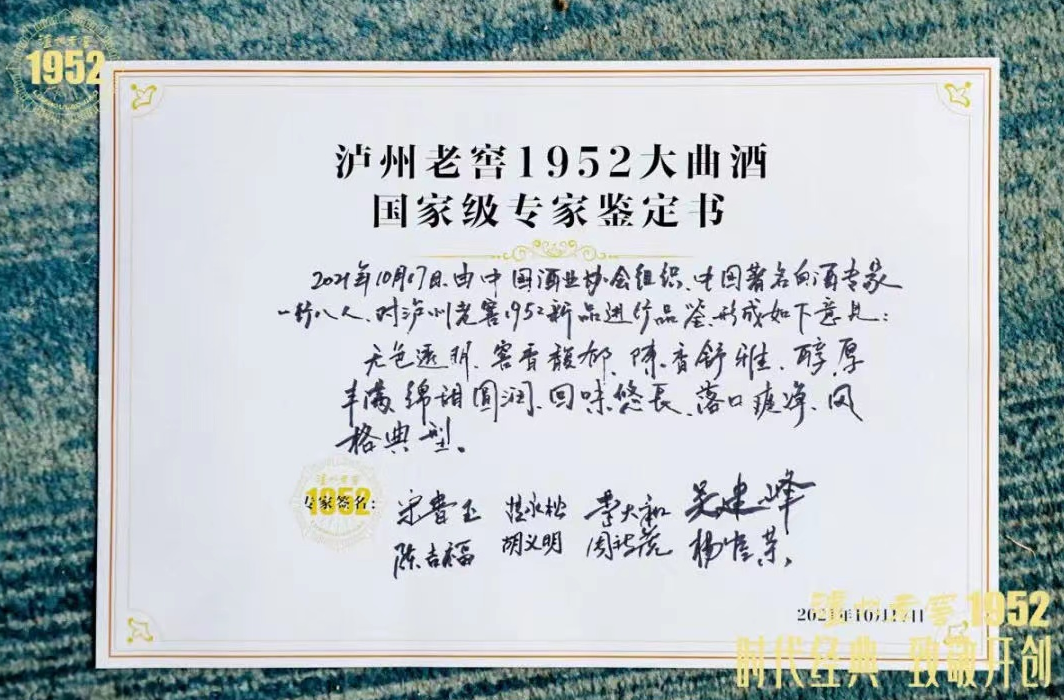 泸州老窖
1952
泸州老窖1952大曲酒
国家级专家鉴定书
2021年10月17日.由中国酒业协会组织、中国著名白酒专家
一行八人、对泸州老窖1952新品进行品鉴,形成如下意见:
无色透明、窖香馥郁、陈香舒雅、醇厚
丰满、绵甜圆润、回味悠长、落口爽净、风
格典型。
泸州老窖
1952
专家签名:
宋书玉 李大和 吴建峰
陈吉福 胡义明 杨官荣
泸州老窖1952
时代经典 致敬开创